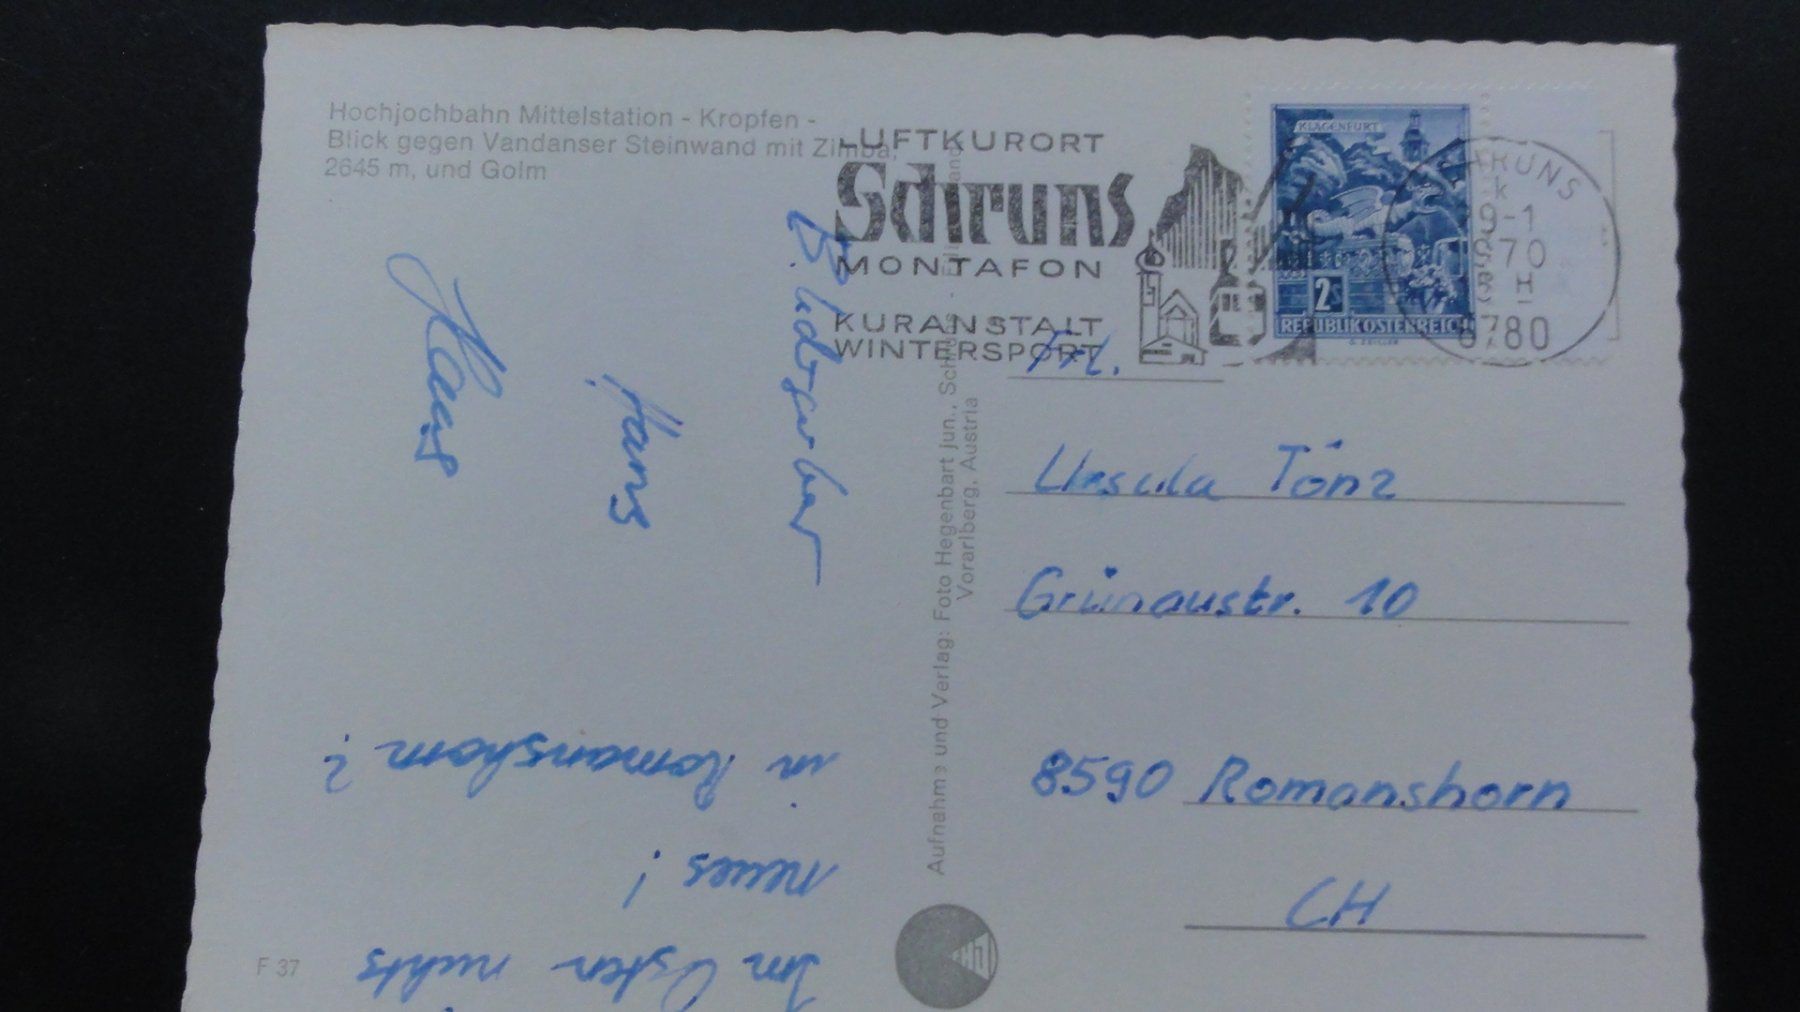 Hochjochbahn Mittelstation - Kropfen -
Blick gegen Vandanser Steinwand mit Zimba,
2645 m, und Golm
LUFTKURORT
Schruns
MONTAFON
KURANSTALT
WINTERSPORT
KLAGENFURT
2s
REPUBLIK ÖSTERREICH
SCHRUNS
k
9-1
70
H
6780
Frl.
Ursula Tönz
Grünaustr. 10
8590 Romanshorn
CH
Aufnahme und Verlag: Foto Hegenbart jun., Schruns
Vorarlberg, Austria
Hans
Im Osten nichts
neues!
in Romanshorn?
F 37